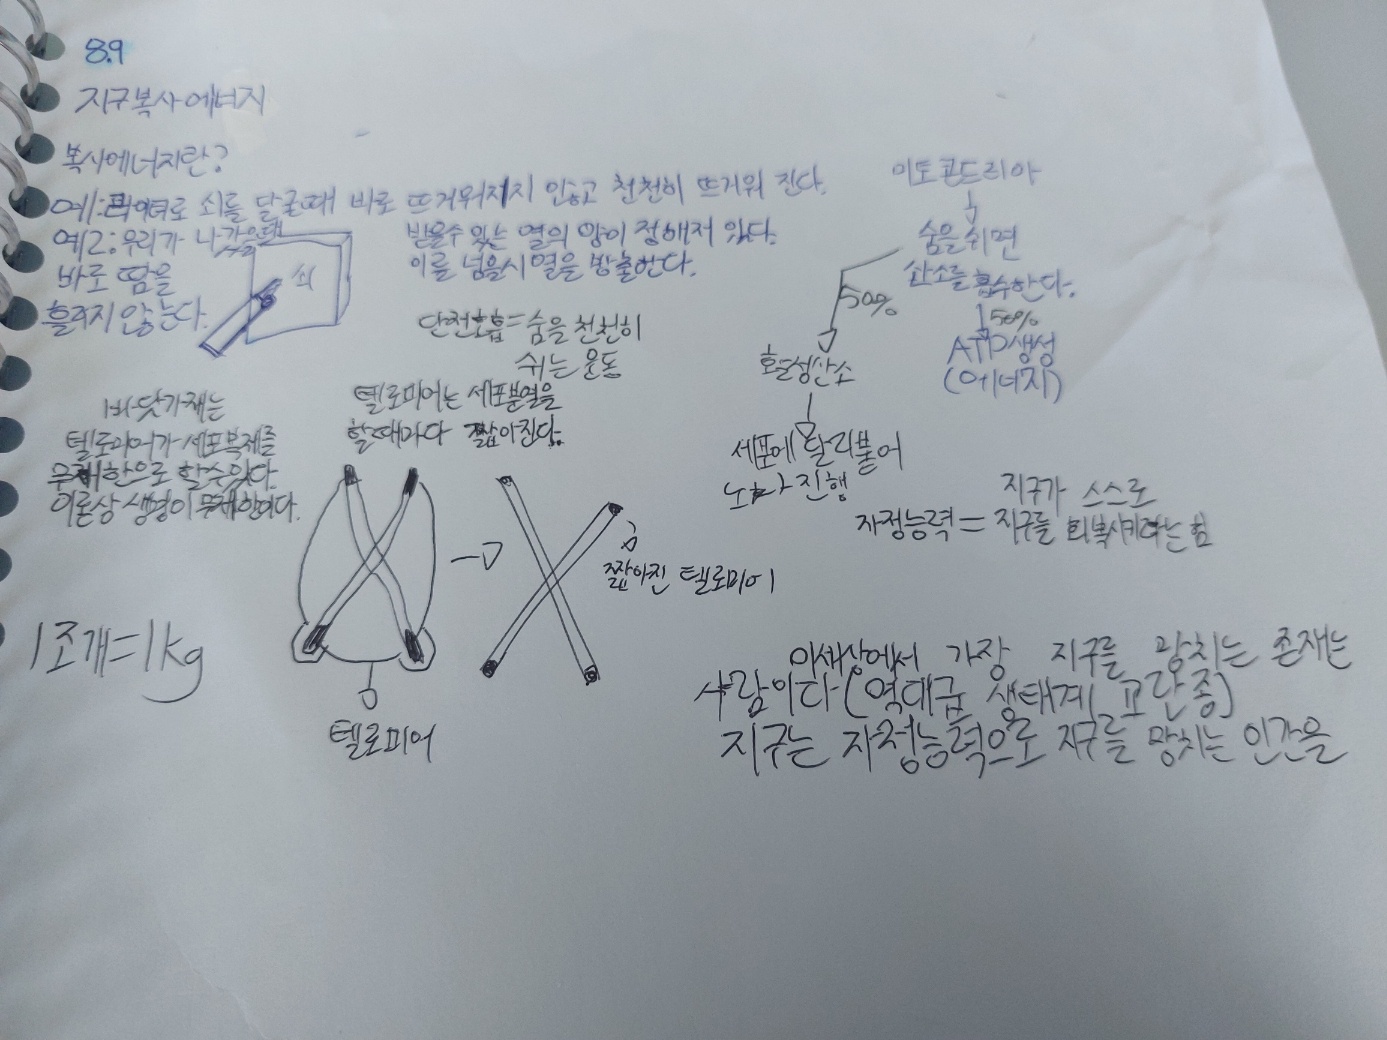 8.9
지구복사에너지
복사에너지란?
예1:라이터로 쇠를 달굴때 바로 뜨거워지지 않고 천천히 뜨거워 진다.
예2:우리가 나갔을때
바로 땀을
흘리지 않는다.
쇠
받을수 있는 열의 양이 정해저 있다.
이를 넘을시 열을 방출한다.
단전호흡=숨을 천천히
쉬는 운동
미토콘드리아
숨을 쉬면
산소를 흡수한다.
50%
50%
ATP생성
(에너지)
활성산소
세포에 달라붙어
노화 진행
바닷가재는
텔로미어가 세포복제를
무제한으로 할수있다.
이론상 생명이 무제한이다.
텔로미어는 세포분열을
할때마다 짧아진다.
짧아진 텔로미어
텔로미어
지구가 스스로
자정능력= 지구를 회복시키려는 힘
1조개=1kg
이세상에서 가장 지구를 망치는 존재는
사람이다(역대급 생태계 교란종)
지구는 자정능력으로 지구를 망치는 인간을